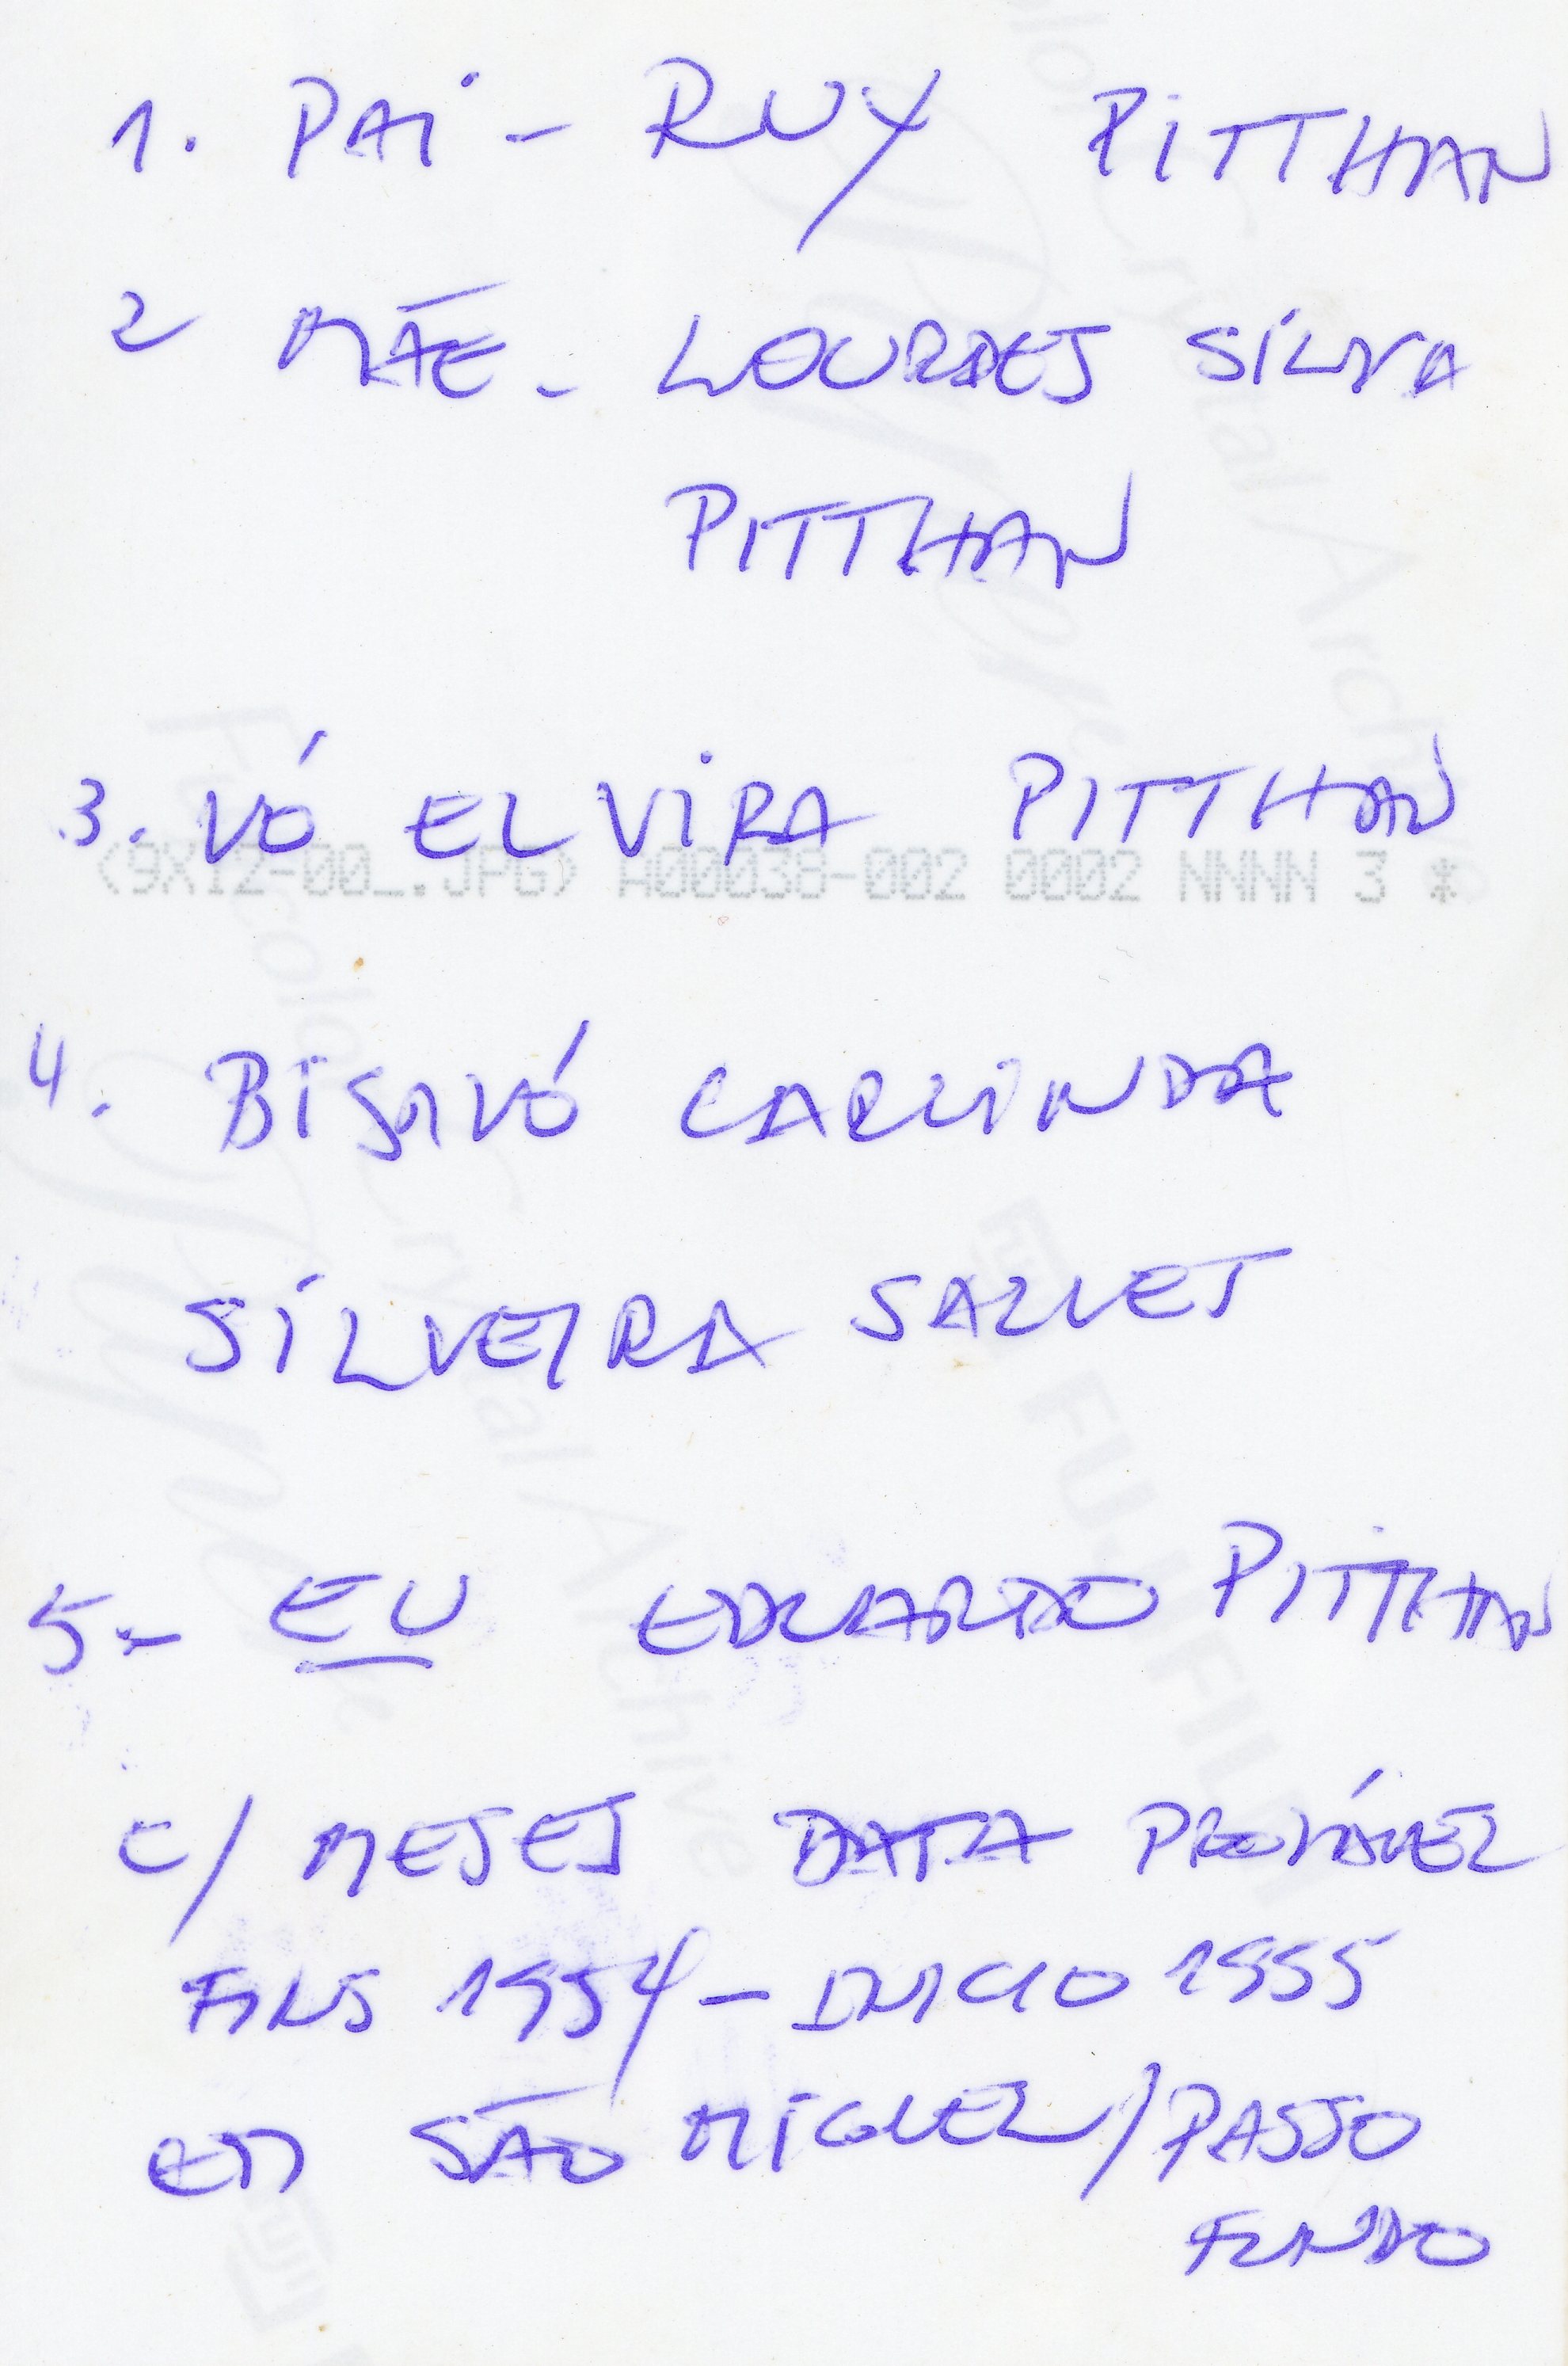 1. PAI - RUY PITTHAN
2 MÃE - LOURDES SILVA
PITTHAN
3. VÓ ELVIRA PITTHAN
(9X12-00_.JPG) A00038-002 0002 NNNN 3 *
4. BISAVÓ CARLINDA
SILVEIRA SALVET
5 - EU EDUARDO PITTHAN
C/ MESES DATA PROVÁVEL
FINS 1954 - INICIO 1955
EM SÃO MIGUEL/PASSO
FUNDO
Fujicolor Crystal Archive
Paper
FUJIFILM